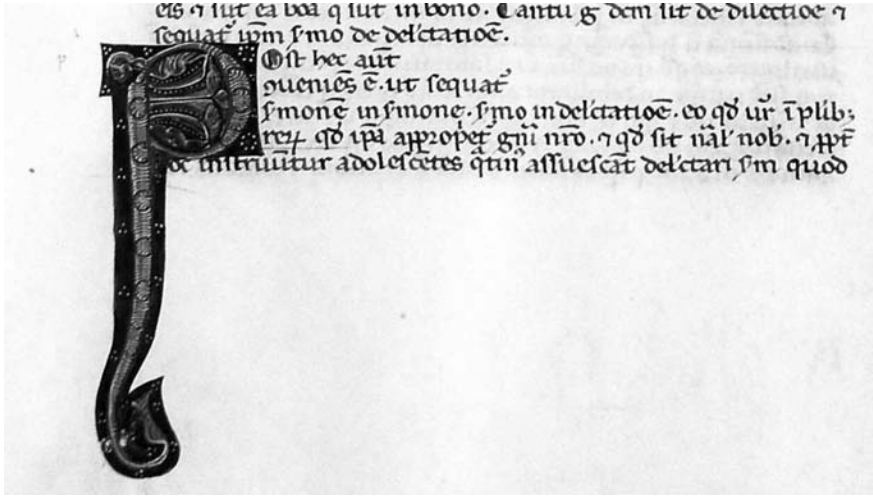 eis ⁊ sūt ea boa q̄ sūt in bono. Tantū g̊ dcm̄ sit de dilectiōe ⁊
sequat᷑ ip̄m s̓mo de del̓ctatiōe.
Post hec aūt
ꝯueniēs ē. ut sequat᷑
s̓monē in s̓mone. s̓mo in del̓ctatiōe. eo qd̓ ur̄ ī plib;
reꝝ qd̓ ip̄a app̄ropet᷑ gn̄i nr̄o. ⁊ qd̓ sit nāl̓ nob̓. ⁊ ꝓpt̄
oc instruūtur adolescētes q̄tin᷒ assuescāt del̓ctari s̓m quod